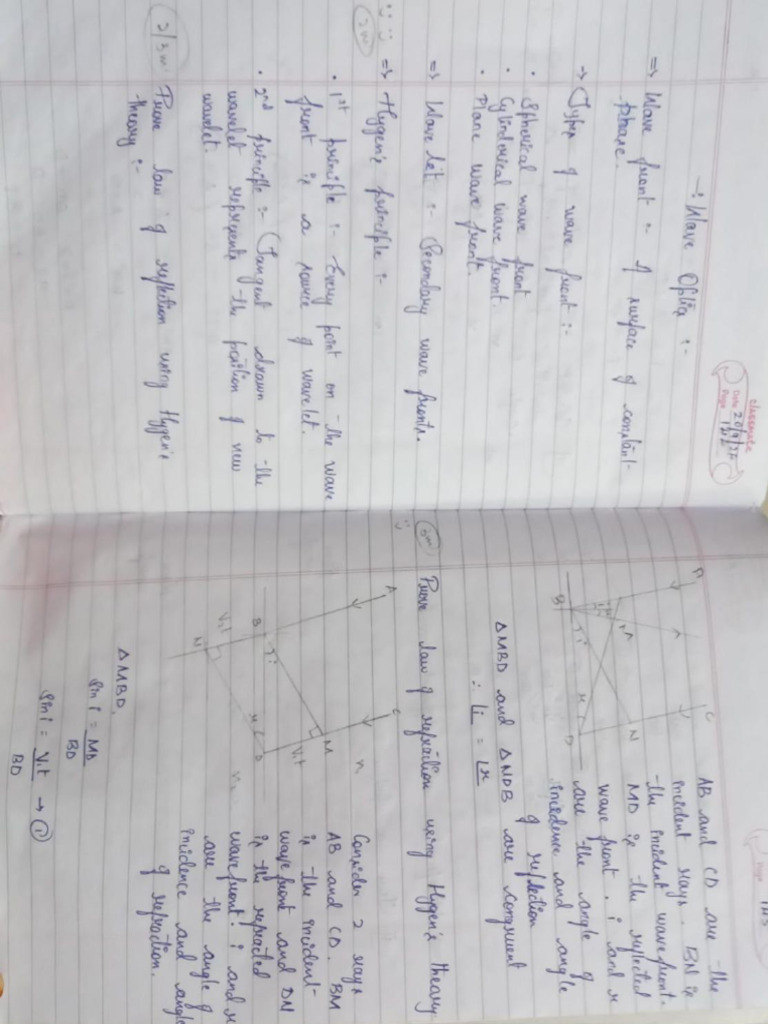 classmate
Date 20/9/22
Page 122
-: Wave Optics :-
=> Wave front :- A surface of constant
phase.
-> Types of wave front :-
• Spherical wave front
• Cylinderical wave front.
• Plane wave front.
=> Wave let :- Secondary wave fronts.
2m
=> Hygen's principle :-
• 1st principle :- Every point on the wave
front is a source of wavelet.
• 2nd principle :- Tangent drawn to the
wavelet represents the position of new
wavelet.
2/3m
Prove law of reflection using Hygen's
theory :-
Page
AB and CD are the
incident rays. BN is
the incident wavefront.
MD is the reflected
wave front. i and r
are the angle of
incidence and angle
of reflection
A
C
M
N
B
i
r
D
∆MBD and ∆NDB are congruent
∴ Li = Lr
3m
Prove law of refraction using Hygen's theory
A
C
B
i
M
V₁t
r
D
N
V₂t
Consider 2 rays
AB and CD. BM
is the incident
wave front and DN
is the refracted
wavefront. i and r
are the angle of
incidence and angle
of refraction.
∆MBD
sin i = MD
BD
sin i = V₁t → ①
BD